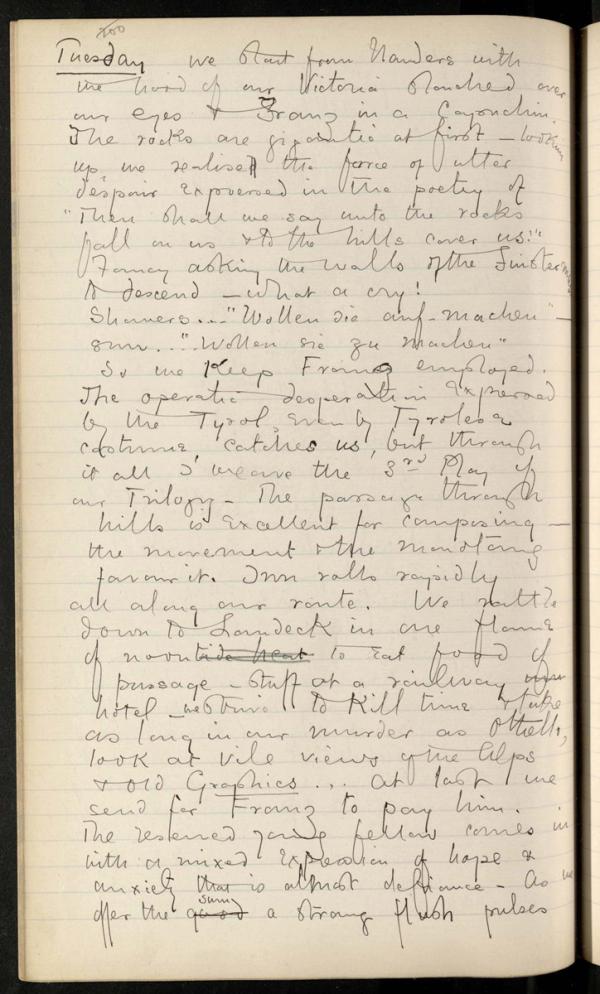 200
Tuesday we start from Nanders with
the hood of our Victoria slouched over
our eyes & Franz in a Capuchin.
The rocks are gigantic at first – looking
up, we realised the force of utter
despair expressed in the poetry of
"Then shall we say unto the rocks
fall on us & to the hills cover us!"
Fancy asking the walls of the Finstermunz
to descend – what a cry!
Showers... "Wollen sie auf-machen" –
sun... "Wollen sie zu machen"
So we keep Franz employed.
The operatic desperation expressed
by the Tyrol, even by Tyrolese
costume, catches us, but through
it all I weave the 3rd Play of
our Trilogy – The passage through
hills is excellent for composing –
the movement & the monotony
favour it. Inn rolls rapidly
all along our route. We rattle
down to Landeck in one flame
of noontide heat to eat food of
passage – stuff at a railway
hotel – we strive to kill time & take
as long in our murder as Othello,
look at vile views of the Alps
& old Graphics... At last we
send for Franz to pay him.
The reserved young fellow comes in
with a mixed expression of hope &
anxiety that is almost defiance – As we
offer the sum a strong flush pulses